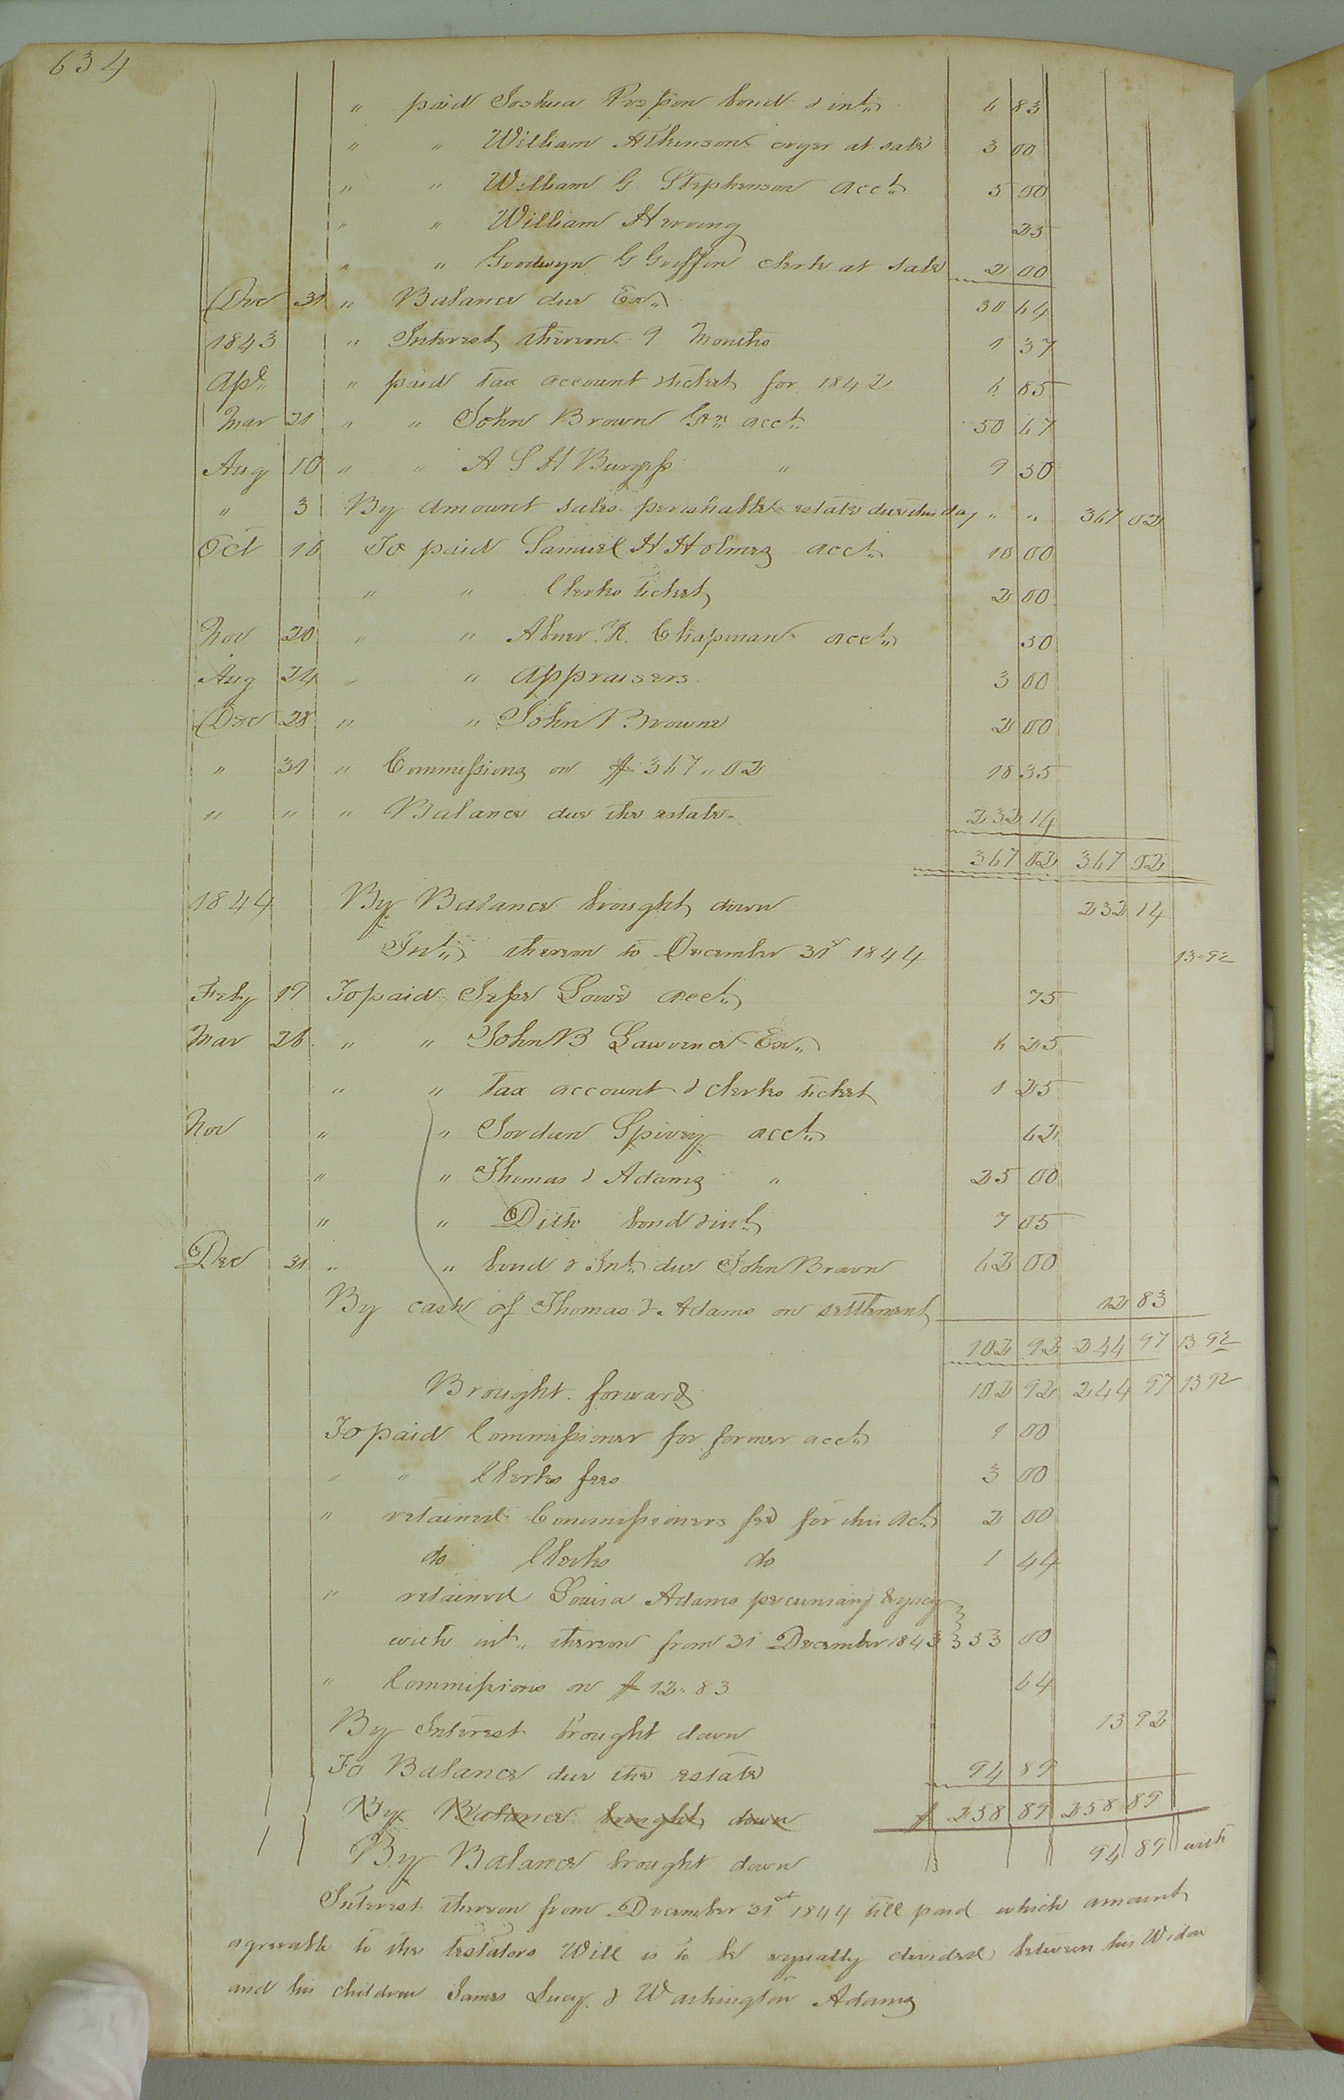 634
" paid Joshua bond & int 6 83
" " William Atkinson cryer at sale 3 00
" " William G Stephenson acct 5 00
" " William Herring 25
" " Goodwyn G Griffin clerk at sale 2 00
Dec 31 " Balance due Exr 30 64
1843 " Interest thereon 9 Months 1 37
Apl " paid tax account & ticket for 1842 6 85
Mar 21 " " John Brown acct 50 67
Aug 10 " " A S H Burgess " 9 50
" 3 By amount sales perishable estate due this day " " 367 02
Oct 16 To paid Samuel H Holmes acct 10 00
" " Clerks ticket 2 00
Nov 20 " " Abner K. Chapman acct 50
Aug 24 " " appraisers 3 00
Dec 28 " " John Browne 2 00
" 31 " Commissions on $367.. 02 18 35
" " " Balance due the estate 232 14
367 02 367 02
1844 By Balance brought down 232 14
Int thereon to December 31st 1844 13.92
Feby 19 To paid Lowe acct 75
Mar 26 " " John B Lawrence Exr 6 25
" " tax account & clerks ticket 1 25
Nov " " Jordan Spivey acct 62
" " Thomas J Adams " 25 00
" " Ditto bond & int 7 05
Dec 31 " " bond & Int due John Brown 62 00
By cash of Thomas J. Adams on settlement 12 83
102 92 244 97 13 92
Brought forward 102 92 244 97 13 92
To paid Commissioner for former acct 1 00
" " Clerks fees 3 00
" retained Commissioners fee for this act 2 00
do Clerks do 1 44
" retained Louisa Adams pecuniary legacy
with int thereon from 31 December 1843 53 00
" Commissions on $12.83 64
By Interest brought down 13 92
To Balance due the estate 94 89
By Balance brought down $258 89 258 89
By Balance brought down 94 89 with
Interest thereon from December 31st 1844 till paid which amount
agreeable to the testators Will is to be equally divided between his Widow
and his children James Lucy & Washington Adams